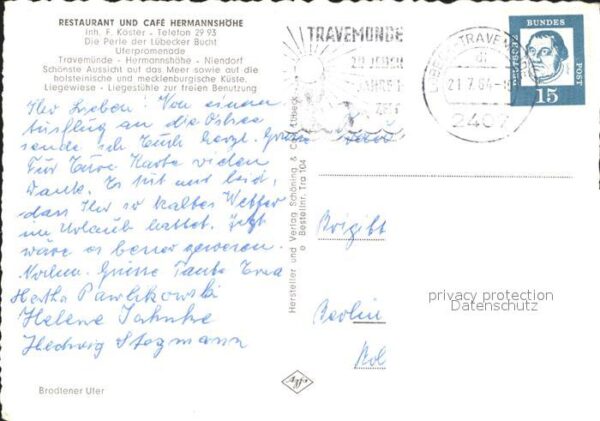 RESTAURANT UND CAFÉ HERMANNSHÖHE
Inh. F. Köster - Telefon 29 93
Die Perle der Lübecker Bucht
Uferpromenade
Travemünde - Hermannshöhe - Niendorf
Schönste Aussicht auf das Meer sowie auf die
holsteinische und mecklenburgische Küste.
Liegewiese - Liegestühle zur freien Benutzung
Ihr Lieben! Von einem
Ausflug an die Ostsee
sende ich Euch herzl. Grüsse
Für Eure Karte vielen
Dank. Es tut uns leid,
dass Ihr so kaltes Wetter
im Urlaub hattet. Jetzt
wäre es besser gewesen.
Nochm. Grüsse Tante Erna
Hertha Pawlikowski
Helene Jahnke
Hedwig Stegmann
Brodtener Ufer
Hersteller und Verlag Schöning & Co., Lübeck
Bestellnr. Tra 104
TRAVEMÜNDE
LÜBECK-TRAVEMÜNDE
21.7.64
2407
DEUTSCHE
BUNDES
POST
15
Brigitt
Berlin
privacy protection
Datenschutz